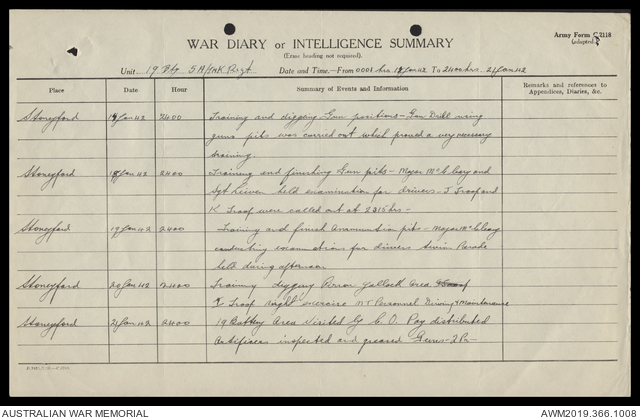 Army Form C.2118
(adapted.)
WAR DIARY or INTELLIGENCE SUMMARY
(Erase heading not required).
Unit 19 Bty 5 A/TNK Regt. Date and Time.—From 0001 hrs 17 Jan 42 To 2400 hrs. 21 Jan 42
Place Date Hour Summary of Events and Information Remarks and references to
Appendices, Diaries, &c.
Stoneyford 17 Jan 42 2400 Training and digging Gun positions - Gas Drill using
guns pits was carried out which proved a very necessary
training.
Stoneyford 18 Jan 42 2400 Training and finishing Gun pits - Major McCleary and
Sgt held examination for drivers - J Troop and
K Troop were called out at 2315 hrs -
Stoneyford 19 Jan 42 2400 Training and finish Ammunition pits - Major McCleary
conducting examinations for drivers Parade
held during afternoon
Stoneyford 20 Jan 42 2400 Training Area
Troop night exercise MT Personnel Driving & Maintenance
Stoneyford 21 Jan 42 2400 19 Battery Area visited by C.O. Pay distributed
Artificer inspected and greased Guns - 2 Pr -
AUSTRALIAN WAR MEMORIAL
AWM2019.366.1008